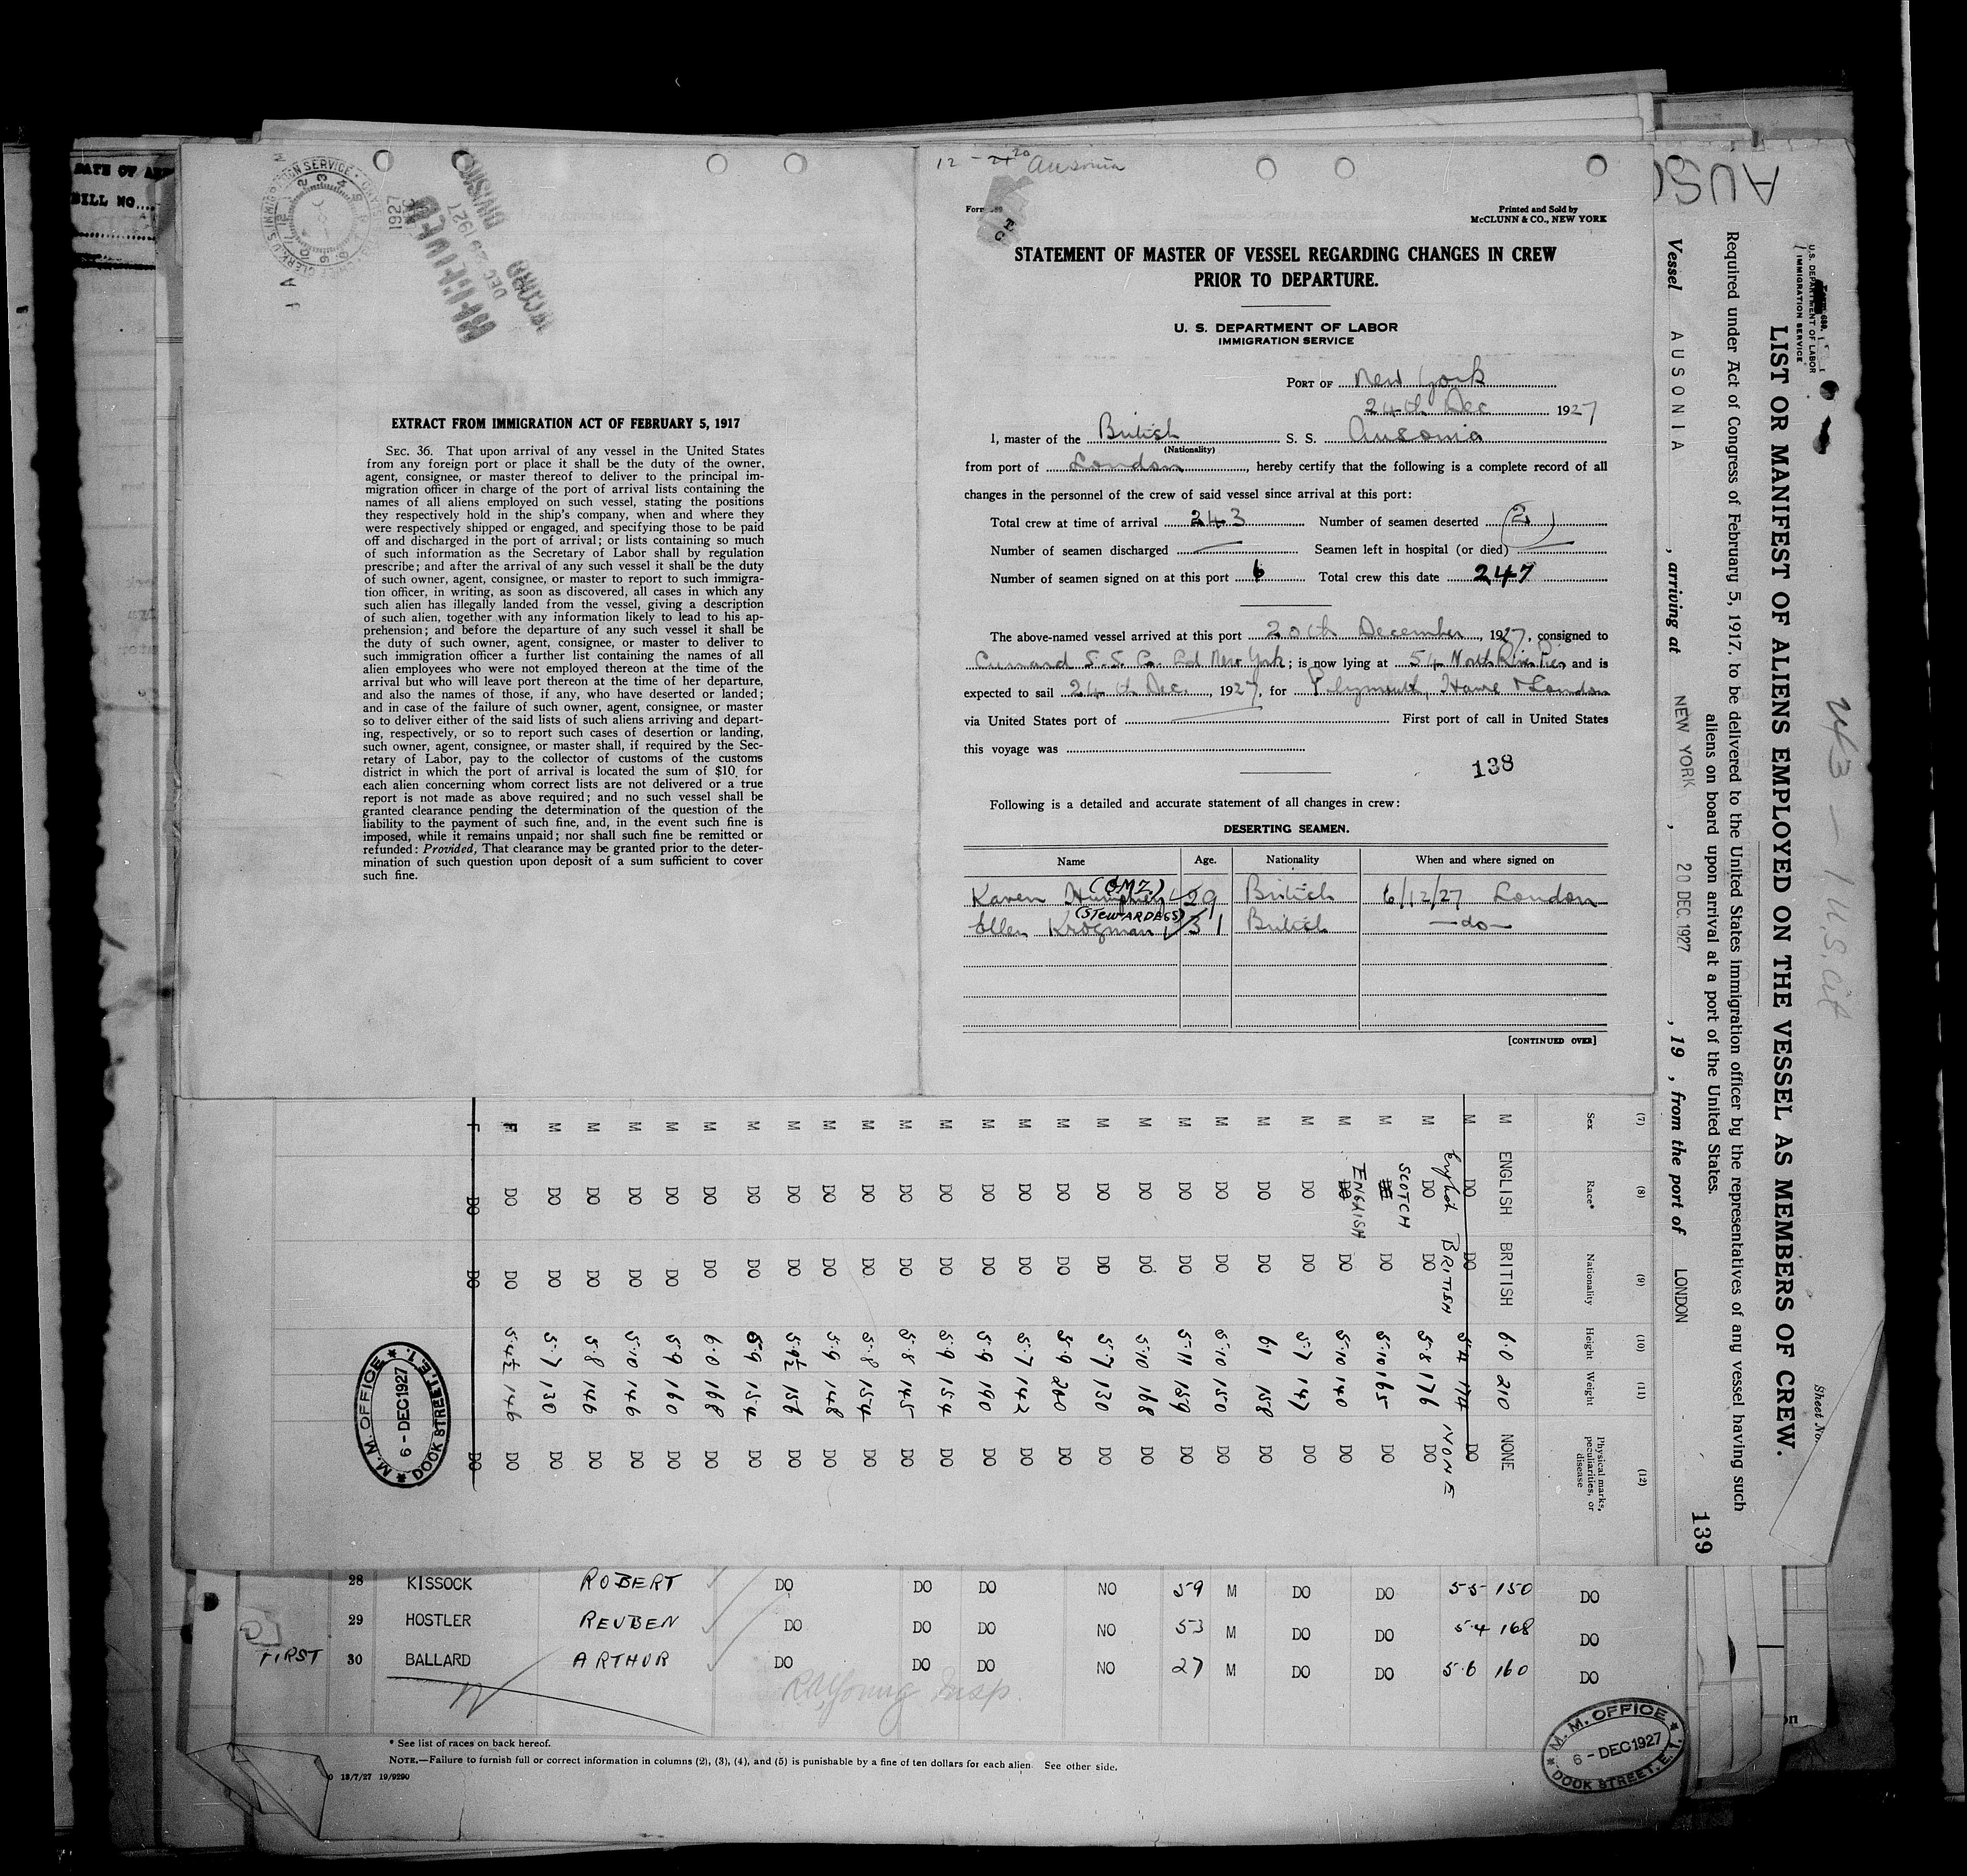 DATE OF
BILL NO....
U.S. IMMIGRATION SERVICE
1927
RECEIVED
DEC 29 1927
RECORD DIVISION
EXTRACT FROM IMMIGRATION ACT OF FEBRUARY 5, 1917
SEC. 36. That upon arrival of any vessel in the United States
from any foreign port or place it shall be the duty of the owner,
agent, consignee, or master thereof to deliver to the principal im-
migration officer in charge of the port of arrival lists containing the
names of all aliens employed on such vessel, stating the positions
they respectively hold in the ship's company, when and where they
were respectively shipped or engaged, and specifying those to be paid
off and discharged in the port of arrival; or lists containing so much
of such information as the Secretary of Labor shall by regulation
prescribe; and after the arrival of any such vessel it shall be the duty
of such owner, agent, consignee, or master to report to such immigra-
tion officer, in writing, as soon as discovered, all cases in which any
such alien has illegally landed from the vessel, giving a description
of such alien, together with any information likely to lead to his ap-
prehension; and before the departure of any such vessel it shall be
the duty of such owner, agent, consignee, or master to deliver to
such immigration officer a further list containing the names of all
alien employees who were not employed thereon at the time of the
arrival but who will leave port thereon at the time of her departure,
and also the names of those, if any, who have deserted or landed;
and in case of the failure of such owner, agent, consignee, or master
so to deliver either of the said lists of such aliens arriving and depart-
ing, respectively, or so to report such cases of desertion or landing,
such owner, agent, consignee, or master shall, if required by the Sec-
retary of Labor, pay to the collector of customs of the customs
district in which the port of arrival is located the sum of $10 for
each alien concerning whom correct lists are not delivered or a true
report is not made as above required; and no such vessel shall be
granted clearance pending the determination of the question of the
liability to the payment of such fine, and, in the event such fine is
imposed, while it remains unpaid; nor shall such fine be remitted or
refunded: Provided, That clearance may be granted prior to the deter-
mination of such question upon deposit of a sum sufficient to cover
such fine.
12 - 20 Ausonia
Form 689
Printed and Sold by
McCLUNN & CO., NEW YORK
STATEMENT OF MASTER OF VESSEL REGARDING CHANGES IN CREW
PRIOR TO DEPARTURE.
U. S. DEPARTMENT OF LABOR
IMMIGRATION SERVICE
PORT OF New York
24th Dec 1927
I, master of the British S. S. Ausonia
(Nationality)
from port of London, hereby certify that the following is a complete record of all
changes in the personnel of the crew of said vessel since arrival at this port:
Total crew at time of arrival 243 Number of seamen deserted (2)
Number of seamen discharged — Seamen left in hospital (or died) —
Number of seamen signed on at this port 6 Total crew this date 247
The above-named vessel arrived at this port 20th December, 1927, consigned to
Cunard S.S. Co. Ltd New York; is now lying at 54 North River Pier and is
expected to sail 24th Dec., 1927, for Plymouth, Havre & London
via United States port of — First port of call in United States
this voyage was
138
Following is a detailed and accurate statement of all changes in crew:
DESERTING SEAMEN.
Name Age. Nationality When and where signed on
Karen Humphrey 29 British 6/12/27 London
(STEWARDESS)
Ellen Krogman 31 British —do—
[CONTINUED OVER]
AUSONIA
U.S. DEPARTMENT OF LABOR
IMMIGRATION SERVICE
243 — 1 U.S. Cit
Sheet No.
LIST OR MANIFEST OF ALIENS EMPLOYED ON THE VESSEL AS MEMBERS OF CREW.
Required under Act of Congress of February 5, 1917, to be delivered to the United States immigration officer by the representatives of any vessel having such
aliens on board upon arrival at a port of the United States.
Vessel AUSONIA, arriving at NEW YORK, 20 DEC 1927, 19 , from the port of LONDON
139
(7) (8) (9) (10) (11) (12)
Sex Race* Nationality Height Weight Physical marks, peculiarities, or disease
M ENGLISH BRITISH 6.0 210 NONE
M DO DO 5.11 174 DO
English BRITISH NONE
M DO DO 5.8 176 DO
M SCOTCH DO 5.10 165 DO
M DO ENGLISH DO 5.10 140 DO
M DO DO 5.7 147 DO
M DO DO 6.1 158 DO
M DO DO 5.10 150 DO
M DO DO 5.11 159 DO
M DO DO 5.10 168 DO
M DO DO 5.7 130 DO
M DO DO 5.9 200 DO
M DO DO 5.7 142 DO
M DO DO 5.9 190 DO
M DO DO 5.9 154 DO
M DO DO 5.8 145 DO
M DO DO 5.8 154 DO
M DO DO 5.9 148 DO
M DO DO 5.9½ 158 DO
M DO DO 5.9 154 DO
M DO DO 6.0 168 DO
M DO DO 5.9 160 DO
M DO DO 5.10 146 DO
M DO DO 5.8 146 DO
M DO DO 5.7 130 DO
F DO DO 5.4½ 146 DO
F DO DO DO
M. M. OFFICE
6 - DEC 1927
DOCK STREET, E.1.
28 KISSOCK ROBERT DO DO DO NO 59 M DO DO 5.5 150 DO
29 HOSTLER REUBEN DO DO DO NO 53 M DO DO 5.4 168 DO
FIRST 30 BALLARD ARTHUR DO DO DO NO 27 M DO DO 5.6 160 DO
RA Young Insp.
* See list of races on back hereof.
NOTE.—Failure to furnish full or correct information in columns (2), (3), (4), and (5) is punishable by a fine of ten dollars for each alien. See other side.
13/7/27 19/9290
M. M. OFFICE
6 - DEC 1927
DOCK STREET, E.1.